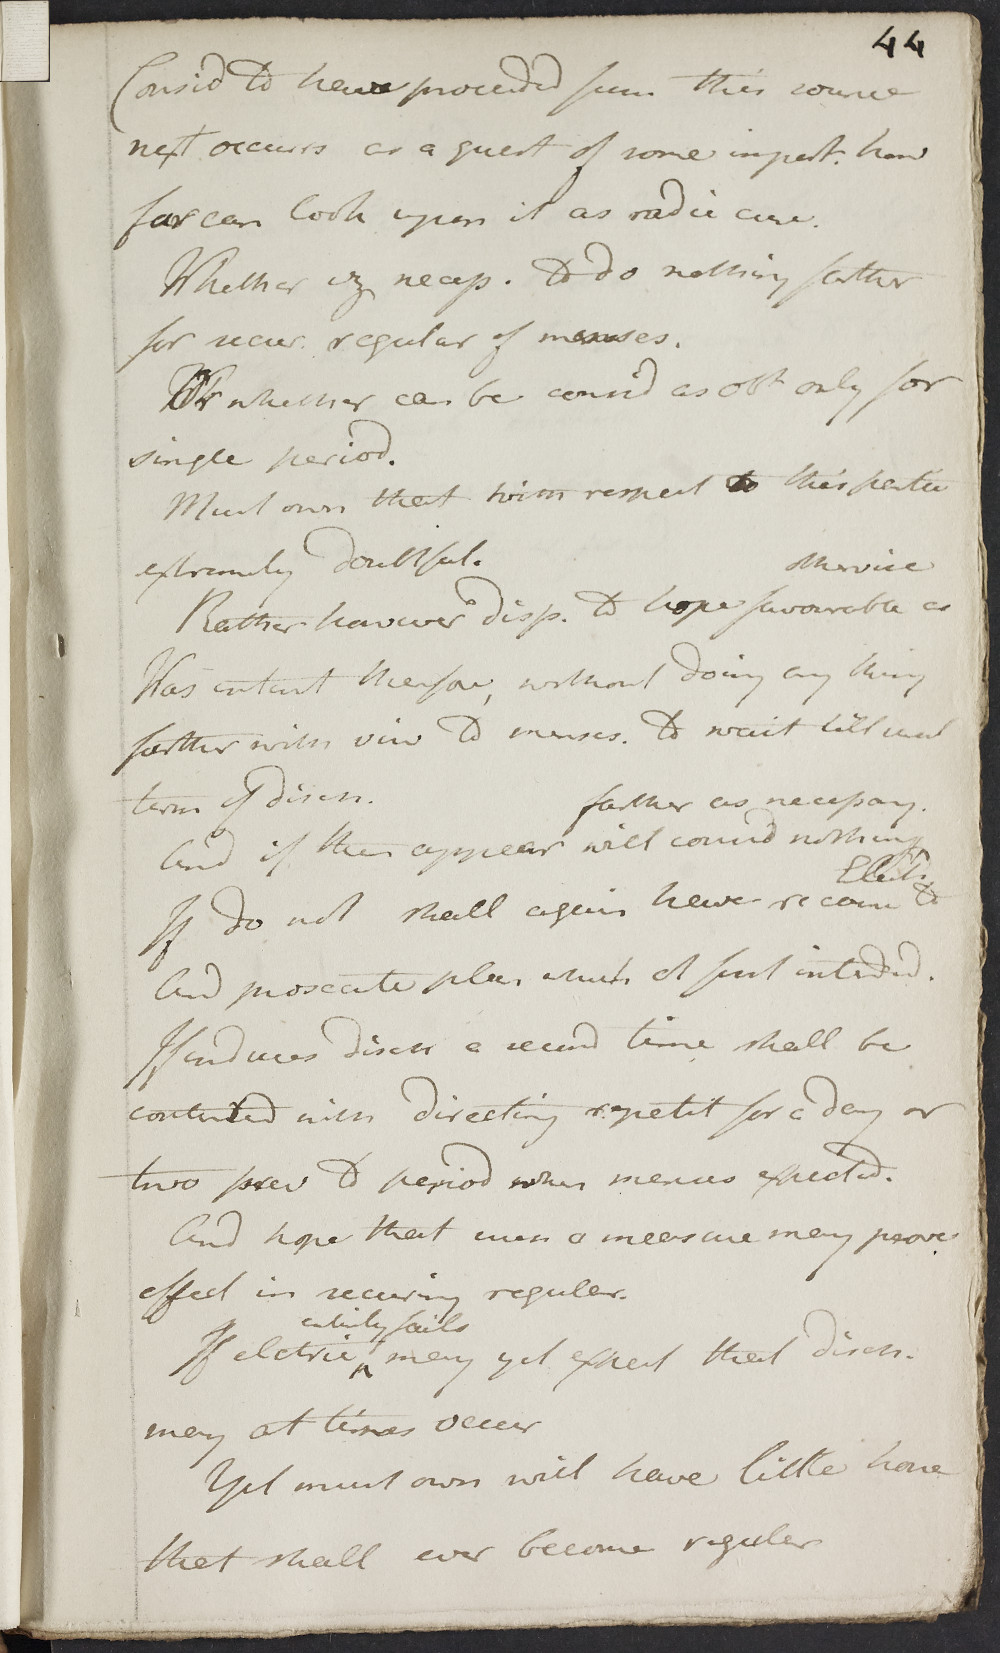 44
Consid to have proceeded from this source
next occurs as a quest of some import. how
far can look upon it as radic cure.
Whether is necess. to do nothing farther
for secur. regular of menses.
Or whether can be consid as obt only for
single period.
Must own that with respect to this partic
extremely doubtful.
otherwise
Rather however disp. to hope favourable as
Was intent therefore, without doing any thing
farther with view to menses. to wait till next
term of disch.
farther as necessary.
And if then appear will consid nothing
Elect.
If do not shall again have recour to
And prosecute plan which at first intended.
If induces disch a second time shall be
contented with directing repetit for a day or
two prev to period when menses expected.
And hope that even a measure may prove
effect in securing regular.
entirely fails
If elctric ^ may yet expect that disch.
may at times occur
Yet must own will have little hope
that shall ever become regular